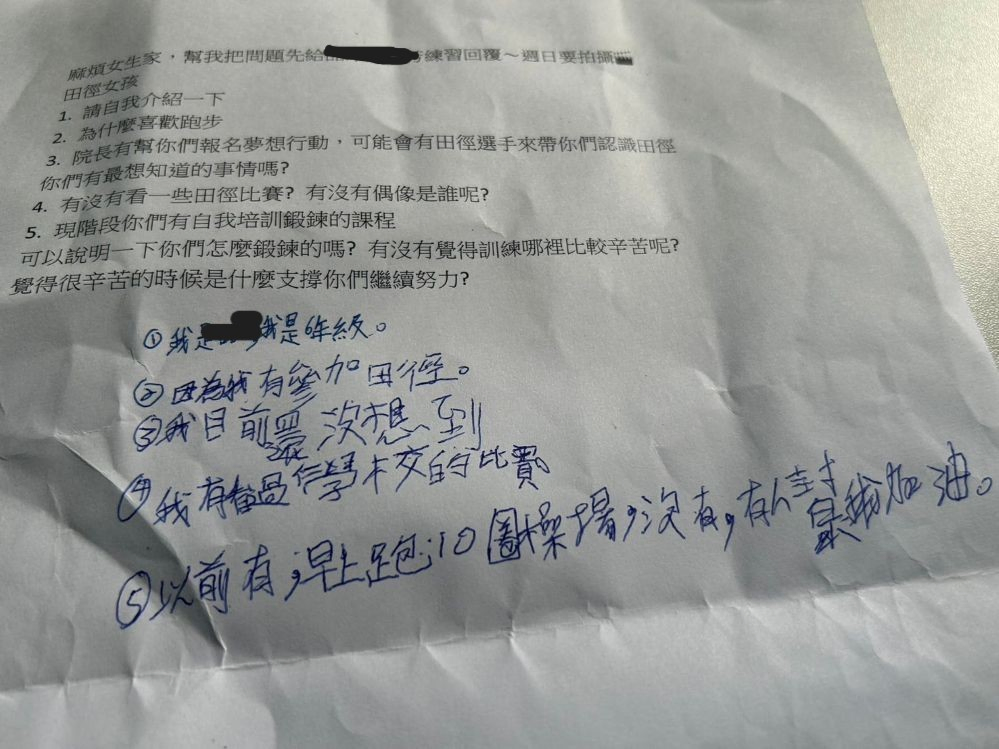 麻煩女生家，幫我把問題先給 練習回覆～週日要拍攝
田徑女孩
1. 請自我介紹一下
2. 為什麼喜歡跑步
3. 院長有幫你們報名夢想行動，可能會有田徑選手來帶你們認識田徑
你們有最想知道的事情嗎?
4. 有沒有看一些田徑比賽? 有沒有偶像是誰呢?
5. 現階段你們有自我培訓鍛鍊的課程
可以說明一下你們怎麼鍛鍊的嗎? 有沒有覺得訓練哪裡比較辛苦呢?
覺得很辛苦的時候是什麼支撐你們繼續努力?
①我是 我是6年級。
②因為我有參加田徑。
③我目前還沒想到
④我有看過 學校的比賽
⑤以前有,早上跑10圈操場,沒有,有人 我加油。